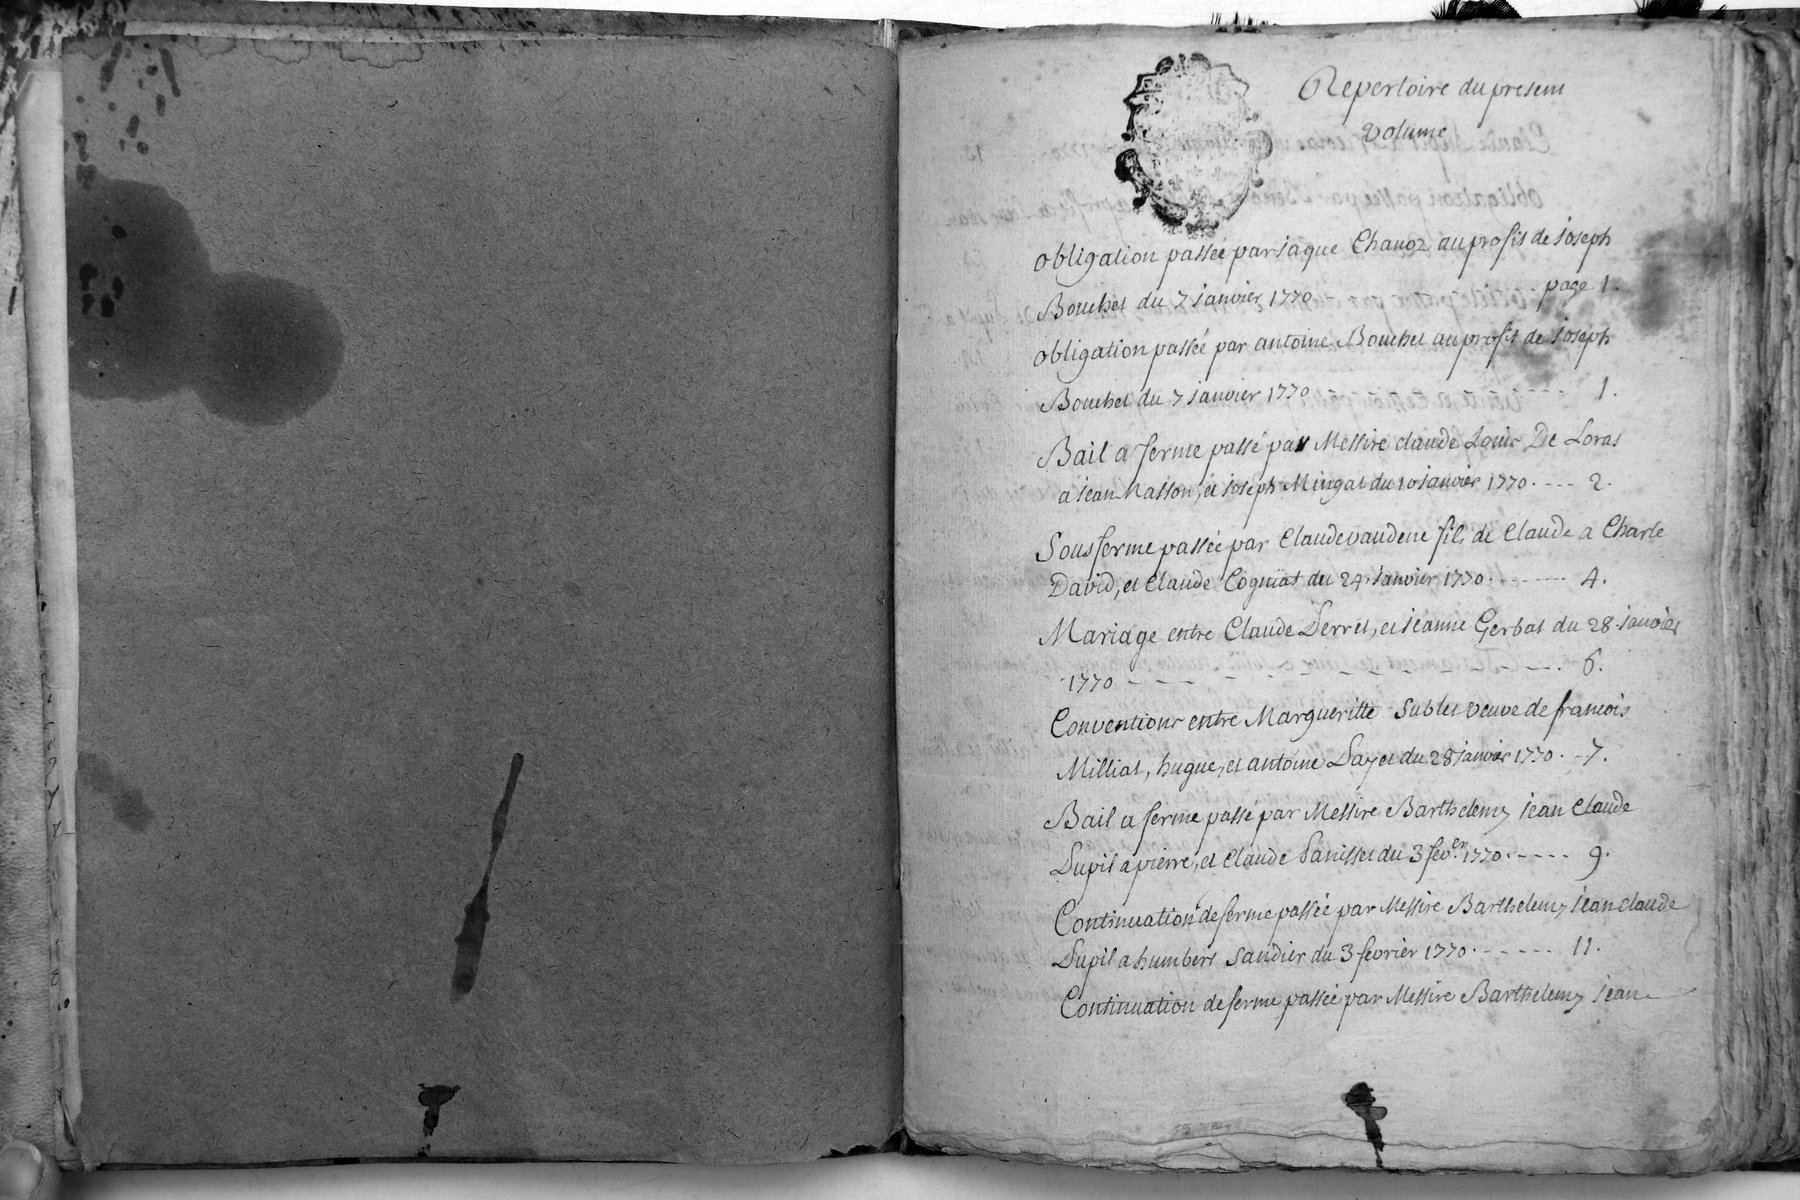 Repertoire du present
volume
obligation passée par jaque Chanoz au profit de joseph
Bouchet du 7 janvier 1770 page 1.
obligation passée par antoine Bouchet au profit de joseph
Bouchet du 7 janvier 1770 ---- 1.
Bail a ferme passé par Messire claude Louis De Loras
a jean Masson, et joseph Mingat du 10 janvier 1770. ---- 2.
Sousferme passée par Claude vaudene fils de Claude a Charle
David, et Claude Cogniat du 24. janvier 1770. ------ 4.
Mariage entre Claude Derret, et jeanne Gerbat du 28. janvier
1770 ---------- 6.
Conventions entre Margueritte Sublet veuve de francois
Milliat, hugue, et antoine Payet du 28 janvier 1770. - 7.
Bail a ferme passé par Messire Barthelemy jean Claude
Dupil a pierre, et Claude Panisset du 3 fev.er 1770. ---- 9.
Continuation de ferme passée par Messire Barthelemy jean claude
Dupil a humbert Sandier du 3 fevrier 1770. ------ 11.
Continuation de ferme passée par Messire Barthelemy jean